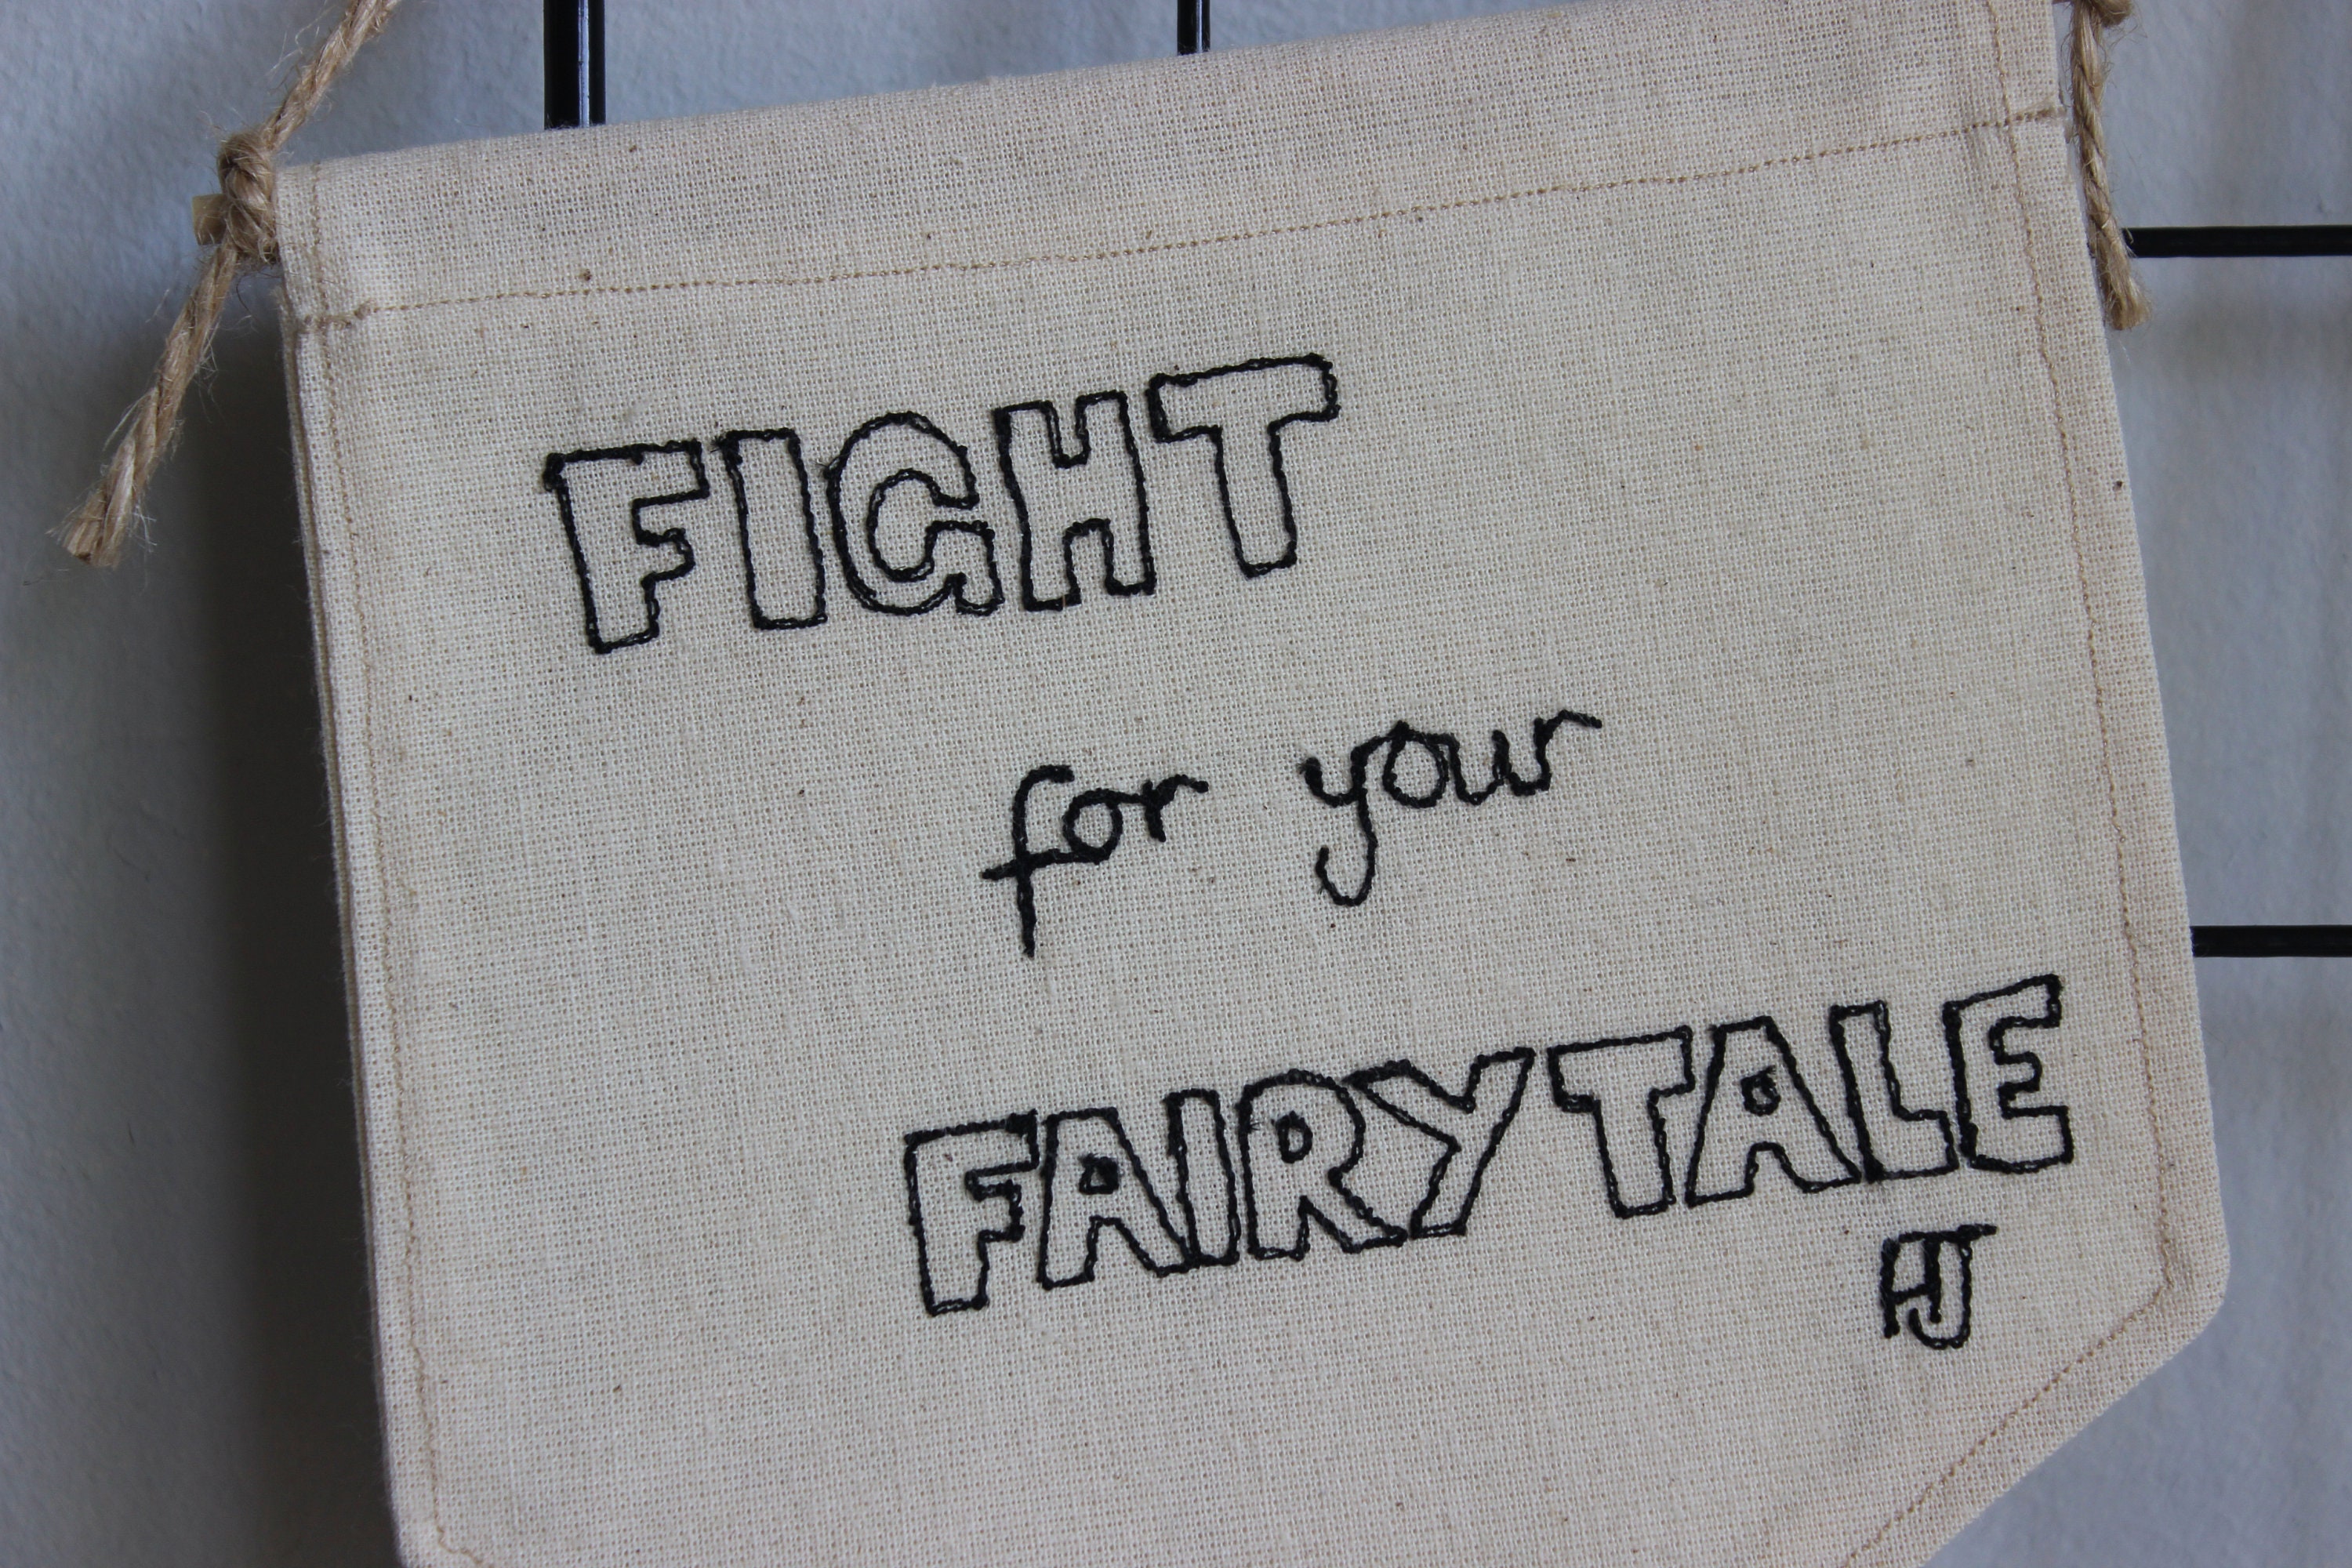 FIGHT
for your
FAIRYTALE